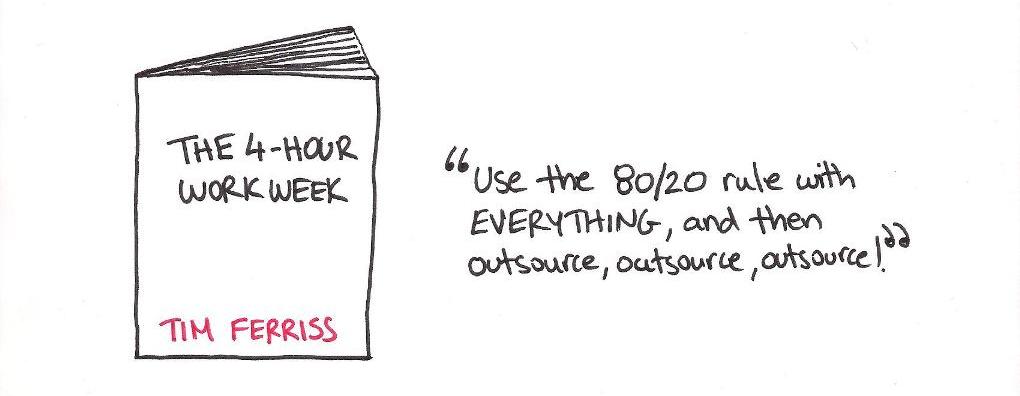 THE 4-HOUR
WORKWEEK
TIM FERRISS
“Use the 80/20 rule with
EVERYTHING, and then
outsource, outsource, outsource!”